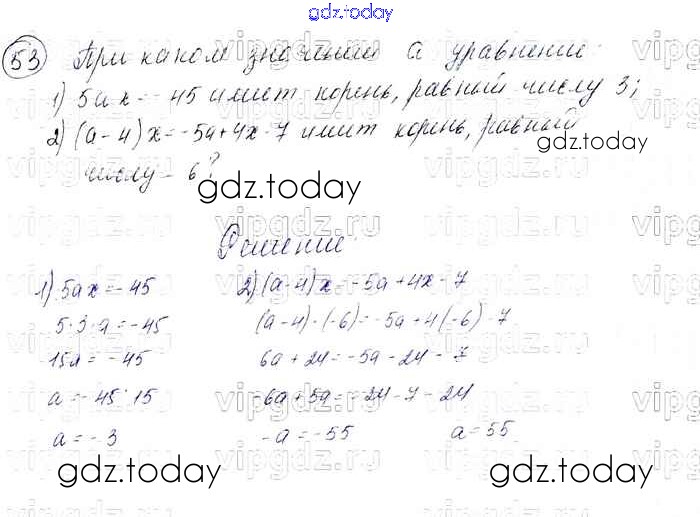 gdz.today
53 При каком значении a уравнение:
1) 5ax = -45 имеет корень, равный числу 3;
2) (a-4)x = -5a+4x-7 имеет корень, равный
числу -6?
gdz.today gdz.today
Решение:
1) 5ax = -45 2) (a-4)x = -5a+4x-7
5·3·a = -45 (a-4)·(-6) = -5a+4(-6)-7
15a = -45 6a+24 = -5a-24-7
a = -45:15 -6a+5a = -24-7-24
a = -3 -a = -55 a = 55
gdz.today gdz.today
vipgdz.ru